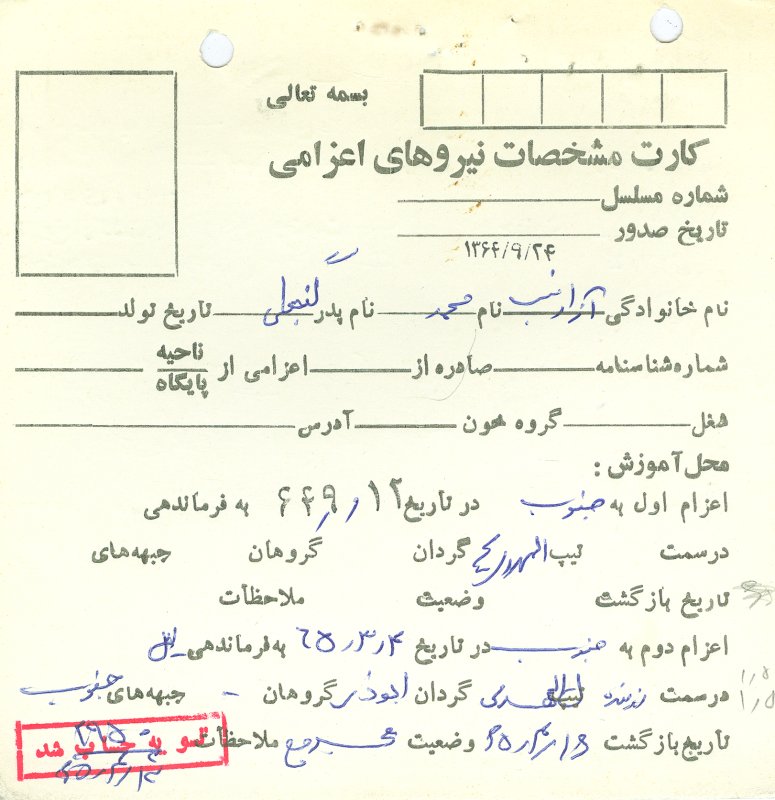 بسمه تعالی
کارت مشخصات نیروهای اعزامی
شماره مسلسل
تاریخ صدور
۱۳۶۴/۹/۲۴
نام خانوادگی نام محمد نام پدر تاریخ تولد
شماره شناسنامه صادره از اعزامی از ناحیه پایگاه
شغل گروه خون آدرس
محل آموزش :
اعزام اول به جنوب در تاریخ به فرماندهی
در سمت تیپ المهدی گردان گروهان جبهه‌های
تاریخ بازگشت وضعیت ملاحظات
اعزام دوم به جنوب در تاریخ ۶۵٫۳٫۴ به فرماندهی
در سمت رزمنده تیپ المهدی گردان ابوذر گروهان - جبهه‌های جنوب
تاریخ بازگشت وضعیت ملاحظات
تسویه حساب شد